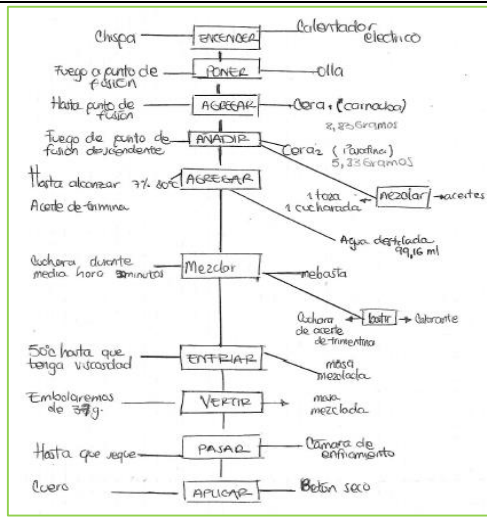 Chispa ENCENDER Calentador electrico
Fuego a punto de fusión PONER olla
Hasta punto de fusión AGREGAR Cera 1 (carnauba)
8,83 Gramos
Fuego de punto de fusión descendente AÑADIR Cera 2 (Parafina)
5,33 Gramos
Hasta alcanzar 7% 80°c AGREGAR
1 taza 1 cucharada mezclar aceites
Aceite de trmina
Agua destilada 99,16 ml
Cuchara durante media hora minutos Mezclar mebasta
Cuchara de aceite de trimentina batir Colorante
50°c hasta que tenga viscosidad ENFRIAR masa mezclada
Embolaremos de g. VERTIR masa mezclada
Hasta que seque PASAR Cámara de enfriamiento
Cuero APLICAR Betún seco